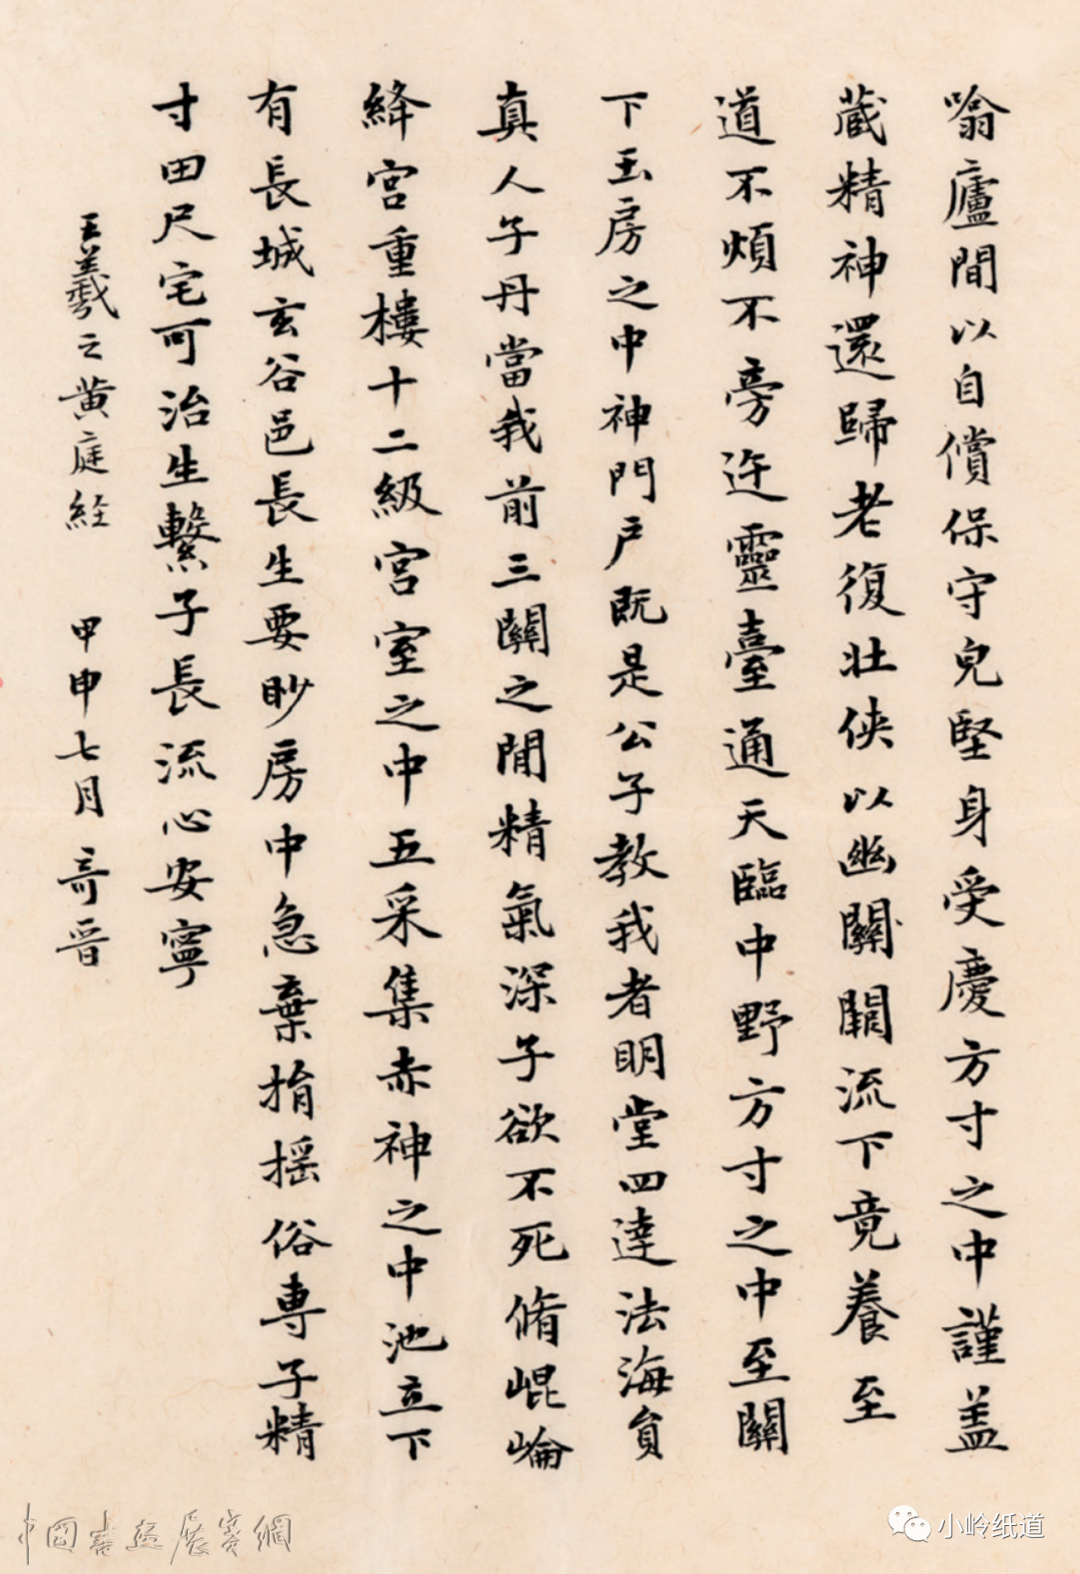 噏廬間以自償保守皃堅身受慶方寸之中謹盖
蔵精神還歸老復壮侠以幽關關流下竟養至
道不煩不旁迕靈臺通天臨中野方寸之中至關
下玉房之中神門户既是公子教我者明堂四達法海員
真人子丹當我前三關之間精氣深子欲不死脩崐崘
絳宮重樓十二級宮室之中五采集赤神之中池立下
有長城玄谷邑長生要眇房中急棄捐摇俗専子精
寸田尺宅可治生繫子長流心安寧
王羲之黄庭経 甲申七月 奇晋
中國書画展賽網
小岭纸道